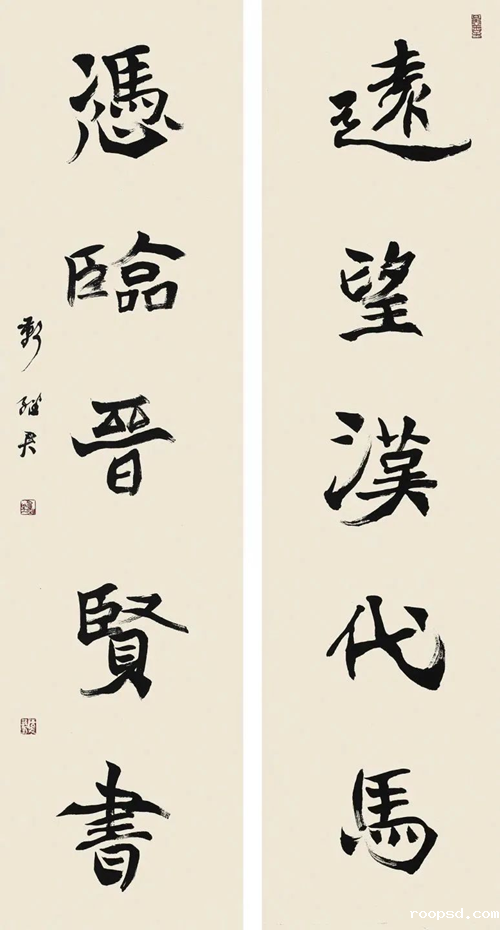 遠望漢代馬
憑臨晉賢書
靳繼君
roopsd.com